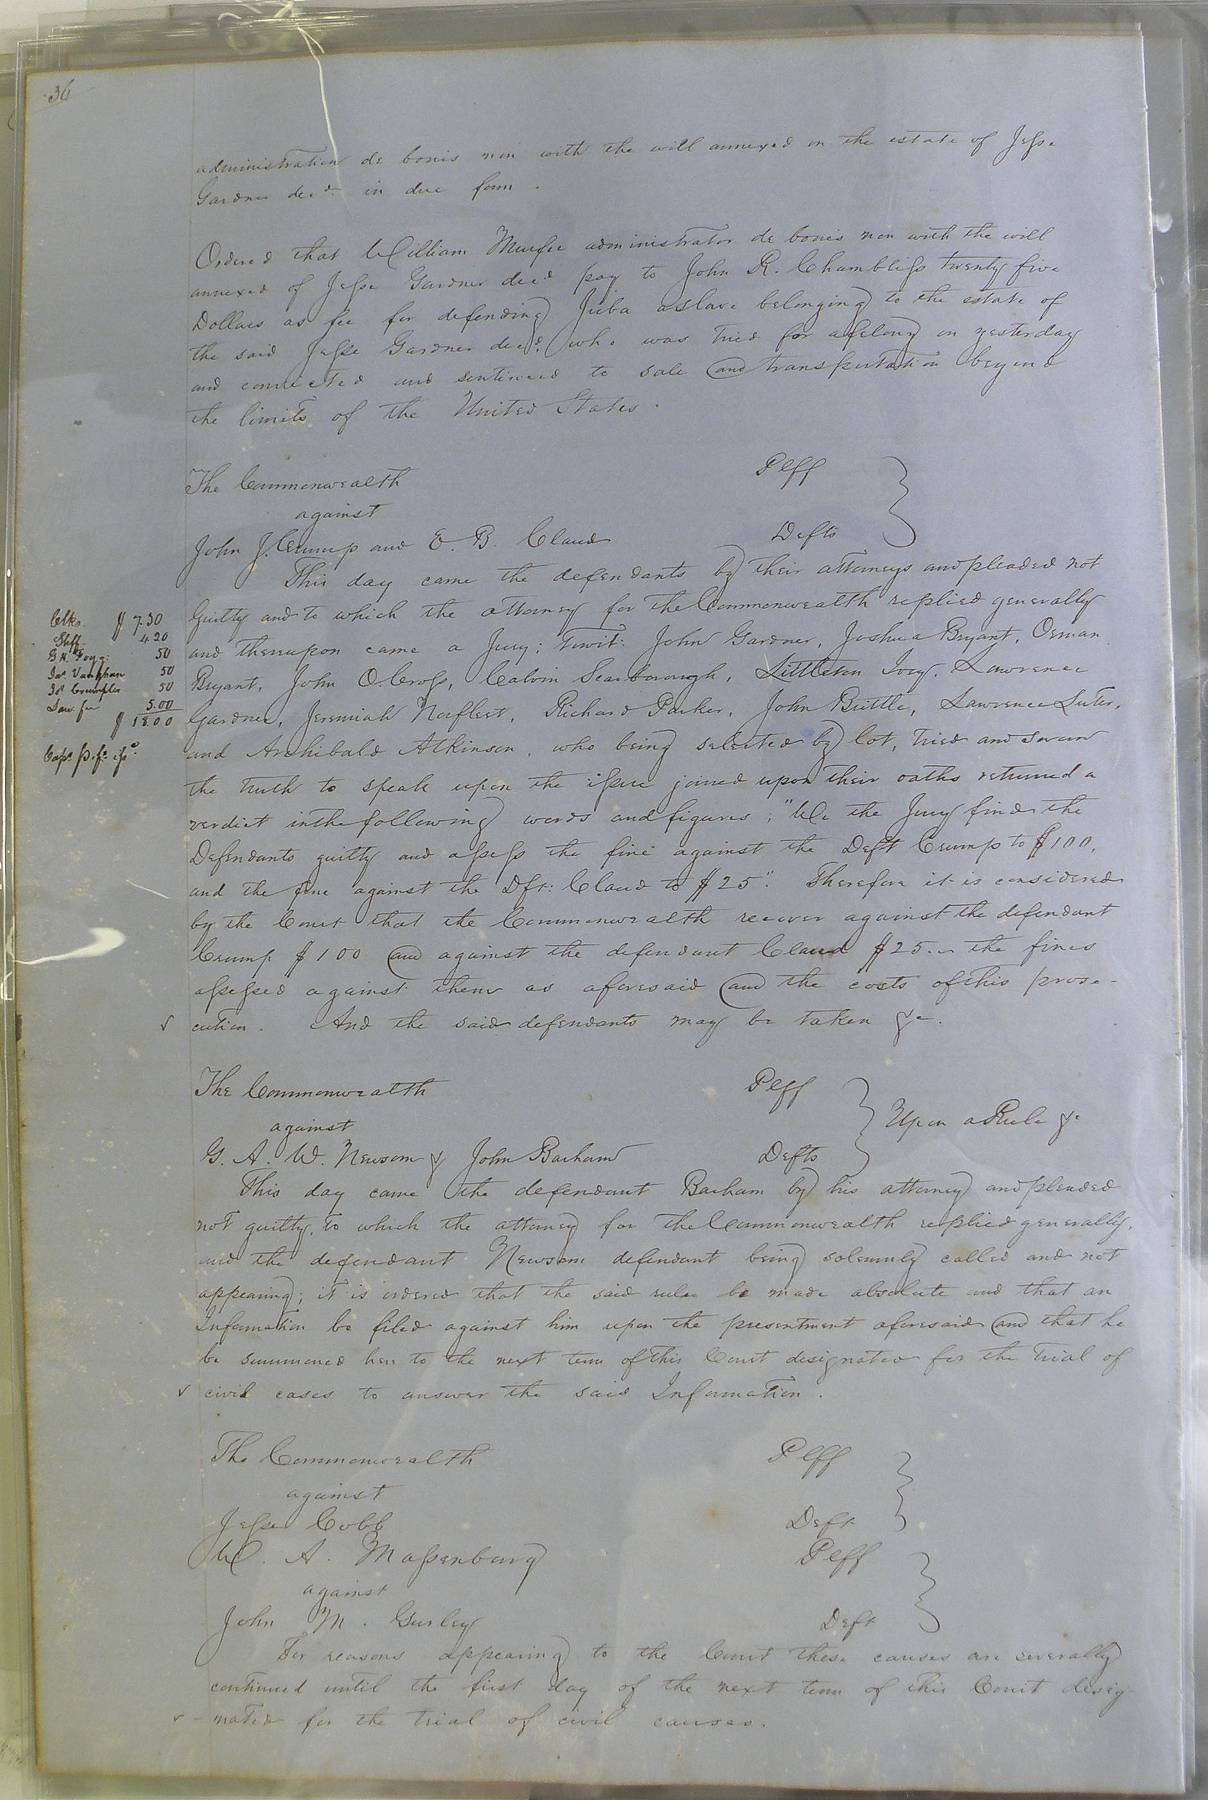 36
administration de bonis non with the will annexed on the estate of Jesse
Gardner decd in due form.
Ordered that William Murfee administrator de bonis non with the will
annexed of Jesse Gardner decd pay to John R. Chambliss twenty five
Dollars as fee for defending Juba a slave belonging to the estate of
the said Jesse Gardner decd, who was tried for a felony on yesterday
and convicted and sentenced to sale and transportation beyond
the limits of the United States.
The Commonwealth Plff
against
John J. Crump and E. B. Claud Defts
This day came the defendants by their attorneys and pleaded not
Guilty and to which the attorney for the Commonwealth replied generally
and thereupon came a Jury; towit: John Gardner, Joshua Bryant, Osman
Bryant, John O. Cross, Calvin Scarborough, Littleton Ivey, Lawrence
Gardner, Jeremiah Norfleet, Richard Parker, John Buttle, Lawrence Luter,
and Archibald Atkinson, who being selected by lot, tried and sworn
the truth to speak upon the issue joined upon their oaths returned a
verdict in the following words and figures; "We the Jury find the
Defendants guilty and assess the fine against the Deft Crump to $100,
and the fine against the Dft: Claud to $25". Therefore it is considered
by the Court that the Commonwealth recover against the defendant
Crump $100 and against the defendant Claud $25. the fines
assessed against them as aforesaid and the costs of this prose-
cution. And the said defendants may be taken &c.
Clks $ 7.30
Shff 4.20
50
Js. Vaughan 50
Js. Crumpler 50
Law fee 5.00
$ 18.00
The Commonwealth Plff
against Upon a Rule &c
G. A. W. Newsom & John Barham Defts
This day came the defendant Barham by his attorney and pleaded
not guilty, to which the attorney for the Commonwealth replied generally,
and the defendant Newsom defendant being solemnly called and not
appearing; it is ordered that the said rule be made absolute and that an
Information be filed against him upon the presentment aforesaid and that he
be summoned here to the next term of this Court designated for the trial of
civil cases to answer the said Information.
The Commonwealth Plff
against
Jesse Cobb Deft
W. A. Massenburg Plff
against
John M. Gurley Deft
For reasons appearing to the Court these causes are severally
continued until the first day of the next term of this Court desig-
nated for the trial of civil causes.